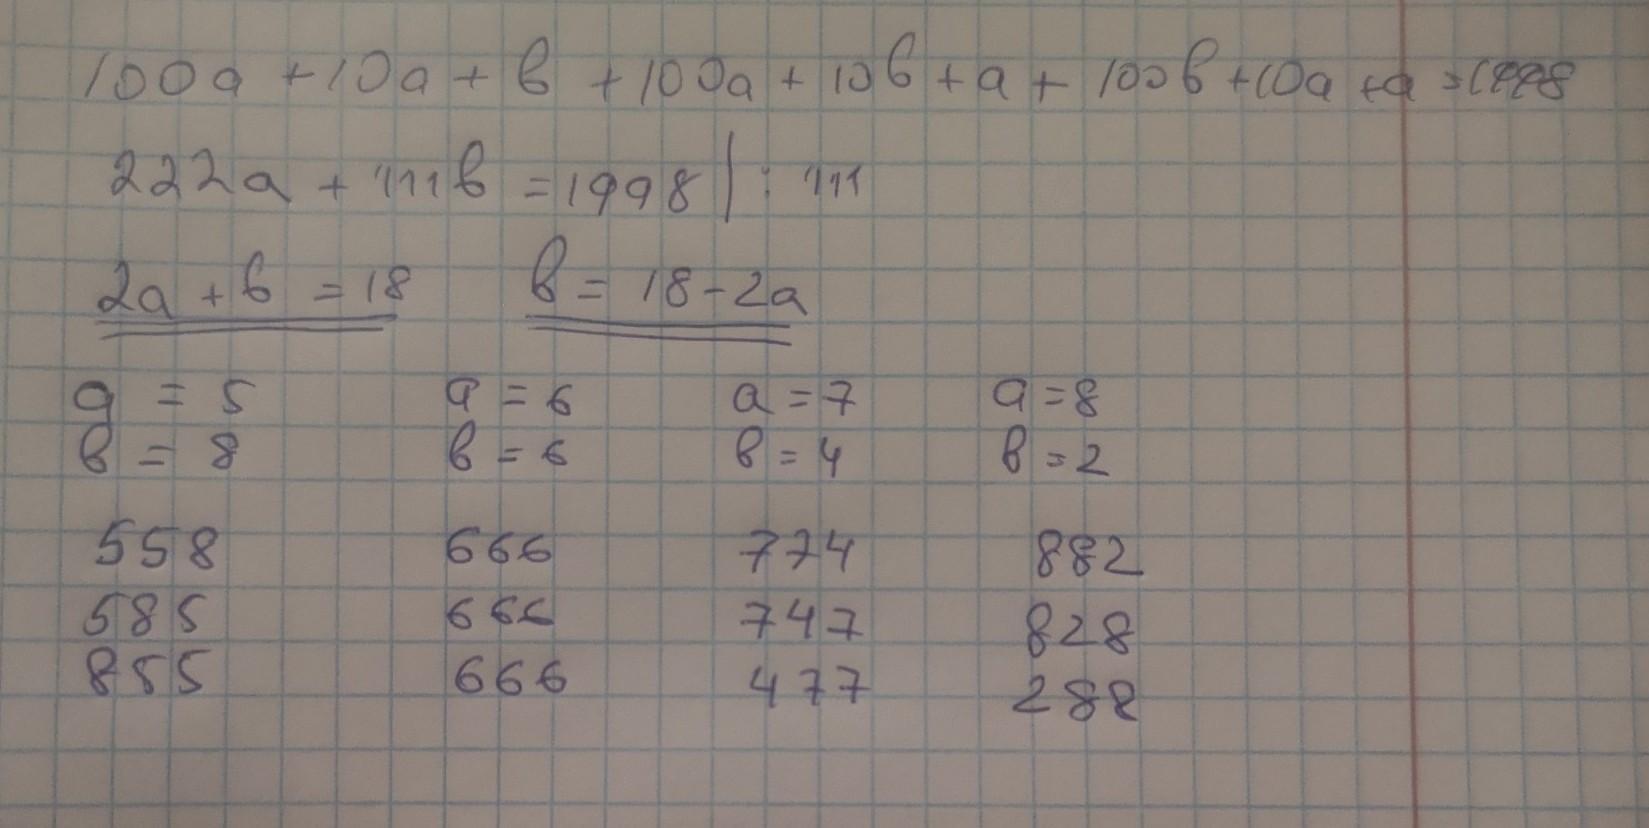 100a + 10a + в + 100a + 10в + a + 100в + 10a + a = 1998
222a + 111в = 1998 | : 111
2a + в = 18 в = 18 - 2a
a = 5 a = 6 a = 7 a = 8
в = 8 в = 6 в = 4 в = 2
558 666 774 882
585 666 747 828
855 666 477 288